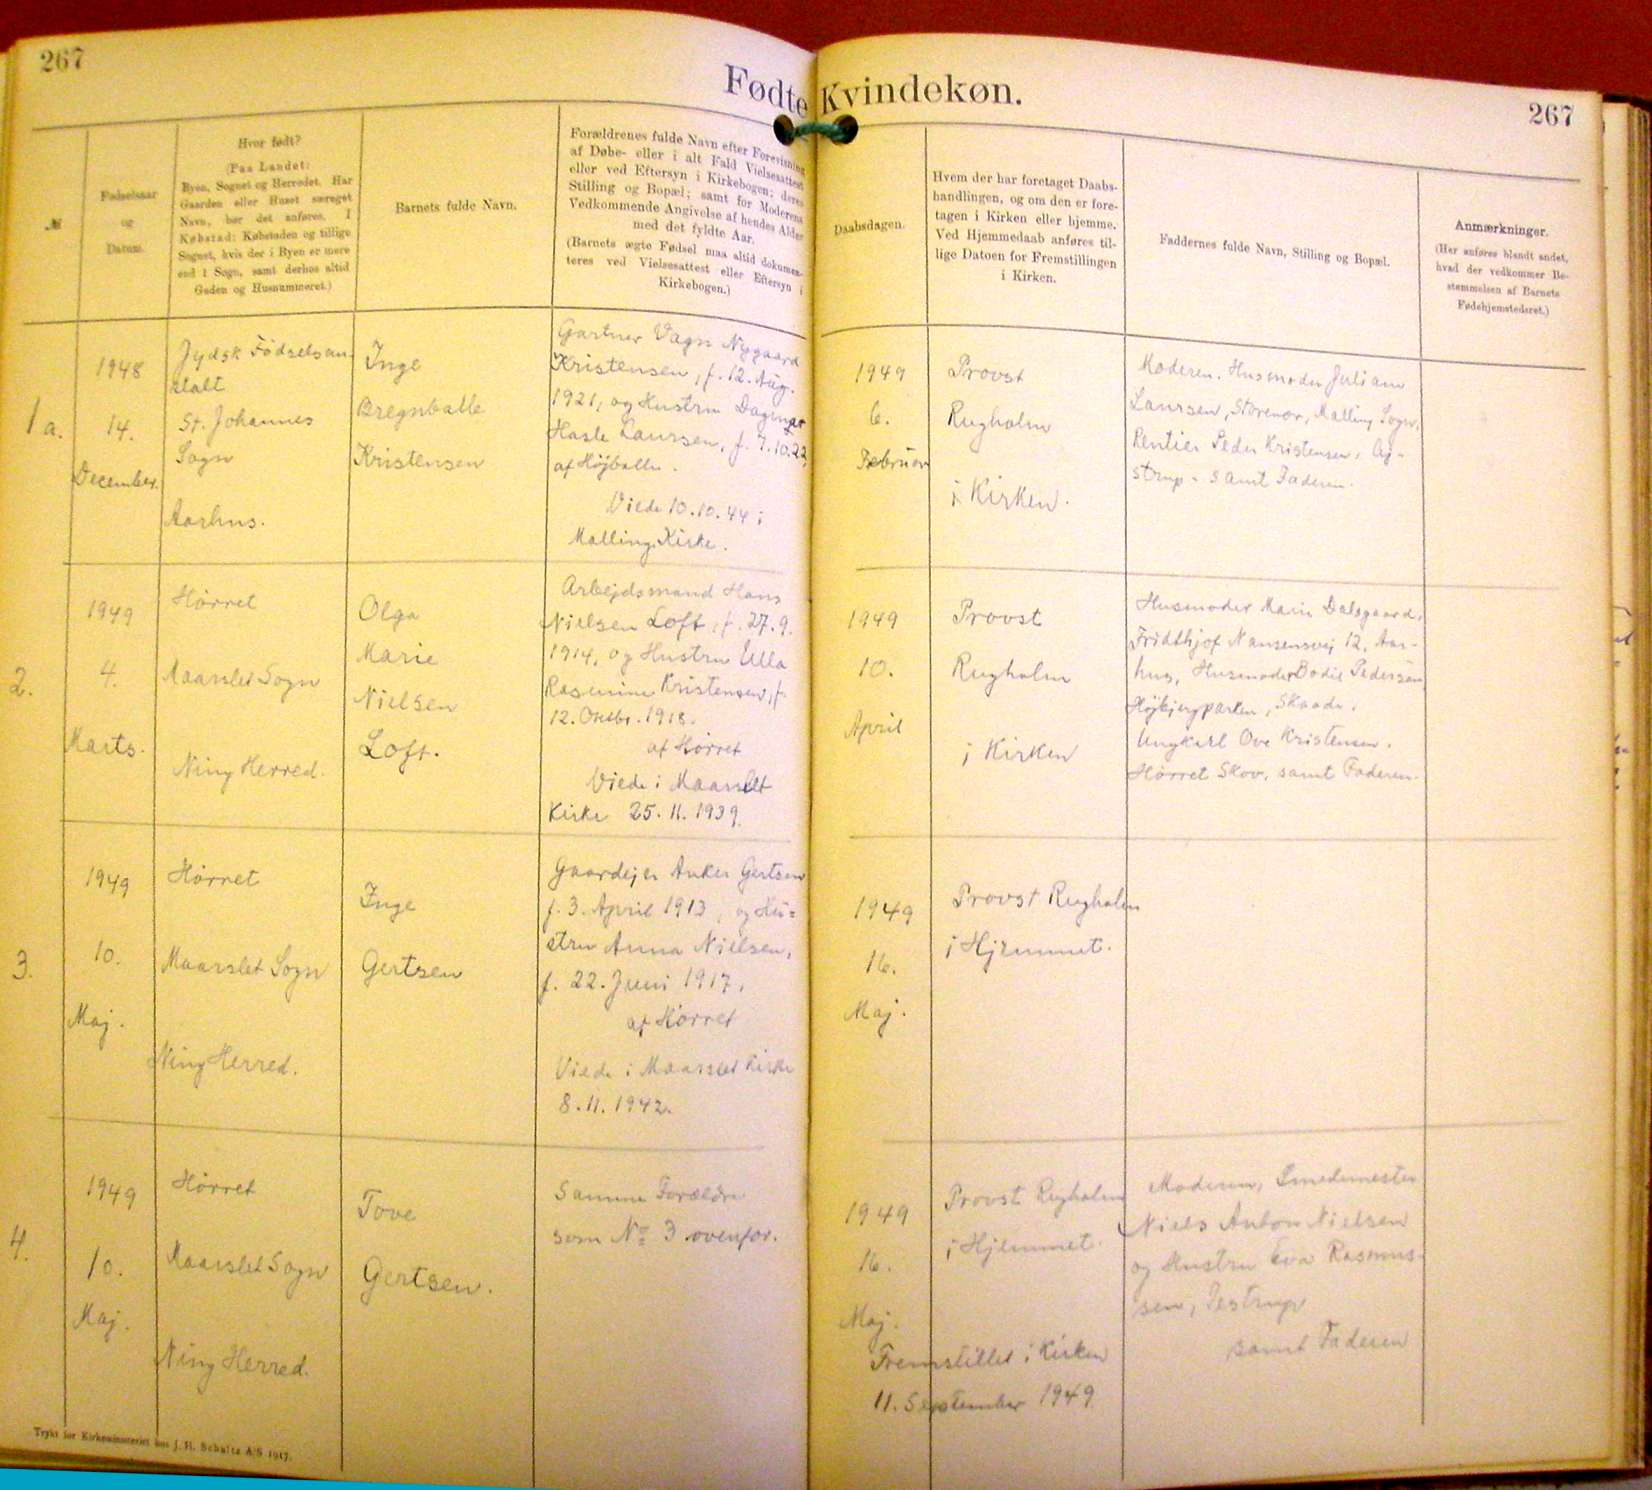 267
Fødte Kvindekøn.
267
№
Fødselsaar
og
Datum.
Hvor født?
(Paa Landet:
Byen, Sognet og Herredet. Har
Gaarden eller Huset særeget
Navn, bør det anføres. I
Købstad: Købstaden og tillige
Sognet, hvis der i Byen er mere
end 1 Sogn, samt derhos altid
Gaden og Husnummeret.)
Barnets fulde Navn.
Forældrenes fulde Navn efter Forevisning
af Døbe- eller i alt Fald Vielsesattest
eller ved Eftersyn i Kirkebogen; deres
Stilling og Bopæl; samt for Moderens
Vedkommende Angivelse af hendes Alder
med det fyldte Aar.
(Barnets ægte Fødsel maa altid dokumen-
teres ved Vielsesattest eller Eftersyn i
Kirkebogen.)
Daabsdagen.
Hvem der har foretaget Daabs-
handlingen, og om den er fore-
tagen i Kirken eller hjemme.
Ved Hjemmedaab anføres til-
lige Datoen for Fremstillingen
i Kirken.
Faddernes fulde Navn, Stilling og Bopæl.
Anmærkninger.
(Her anføres blandt andet,
hvad der vedkommer Be-
stemmelsen af Barnets
Fødehjemstedsret.)
1a.
1948
14.
December.
Jydsk Fødselsan-
stalt
St. Johannes
Sogn
Aarhus.
Inge
Bregnballe
Kristensen
Gartner Vagn Nygaard
Kristensen, f. 12. Aug.
1921, og Hustru Dagmar
Hasle Laursen, f. 7.10.22,
af Højballe.
Viede 10.10.44 i
Malling Kirke.
1949
6.
Februar
Provst
Rugholm
i Kirken.
Moderen. Husmoder Juliane
Laursen, Storenor, Malling Sogn,
Rentier Peder Kristensen, Aj-
strup - samt Faderen.
2.
1949
4.
Marts.
Hørret
Maarslet Sogn
Ning Herred.
Olga
Marie
Nielsen
Loft.
Arbejdsmand Hans
Nielsen Loft, f. 27.9.
1914, og Hustru Ulla
Rasmine Kristensen, f.
12. Oktbr. 1918.
af Hørret
Viede i Maarslet
Kirke 25.11.1939.
1949
10.
April
Provst
Rugholm
i Kirken
Husmoder Marie Dalsgaard,
Fridthjof Nansensvej 12, Aar-
hus, Husmoder Bodil Pedersen
Højbjergparken, Skaade.
Ungkarl Ove Kristensen.
Hørret Skov, samt Faderen.
3.
1949
10.
Maj.
Hørret
Maarslet Sogn
Ning Herred.
Inge
Gertsen
Gaardejer Anker Gertsen
f. 3. April 1913, og Hu=
stru Anna Nielsen,
f. 22. Juni 1917,
af Hørret
Viede i Maarslet Kirke
8.11.1942.
1949
16.
Maj.
Provst Rugholm
i Hjemmet.
4.
1949
10.
Maj.
Hørret
Maarslet Sogn
Ning Herred.
Tove
Gertsen.
Samme Forældre
som № 3 ovenfor.
1949
16.
Maj.
Provst Rugholm
i Hjemmet.
Fremstillet i Kirken
11. September 1949
Moderen, Smedemester
Niels Anton Nielsen
og Hustru Eva Rasmus-
sen, Testrup
samt Faderen
Trykt for Kirkeministeriet hos J. H. Schultz A/S 1917.